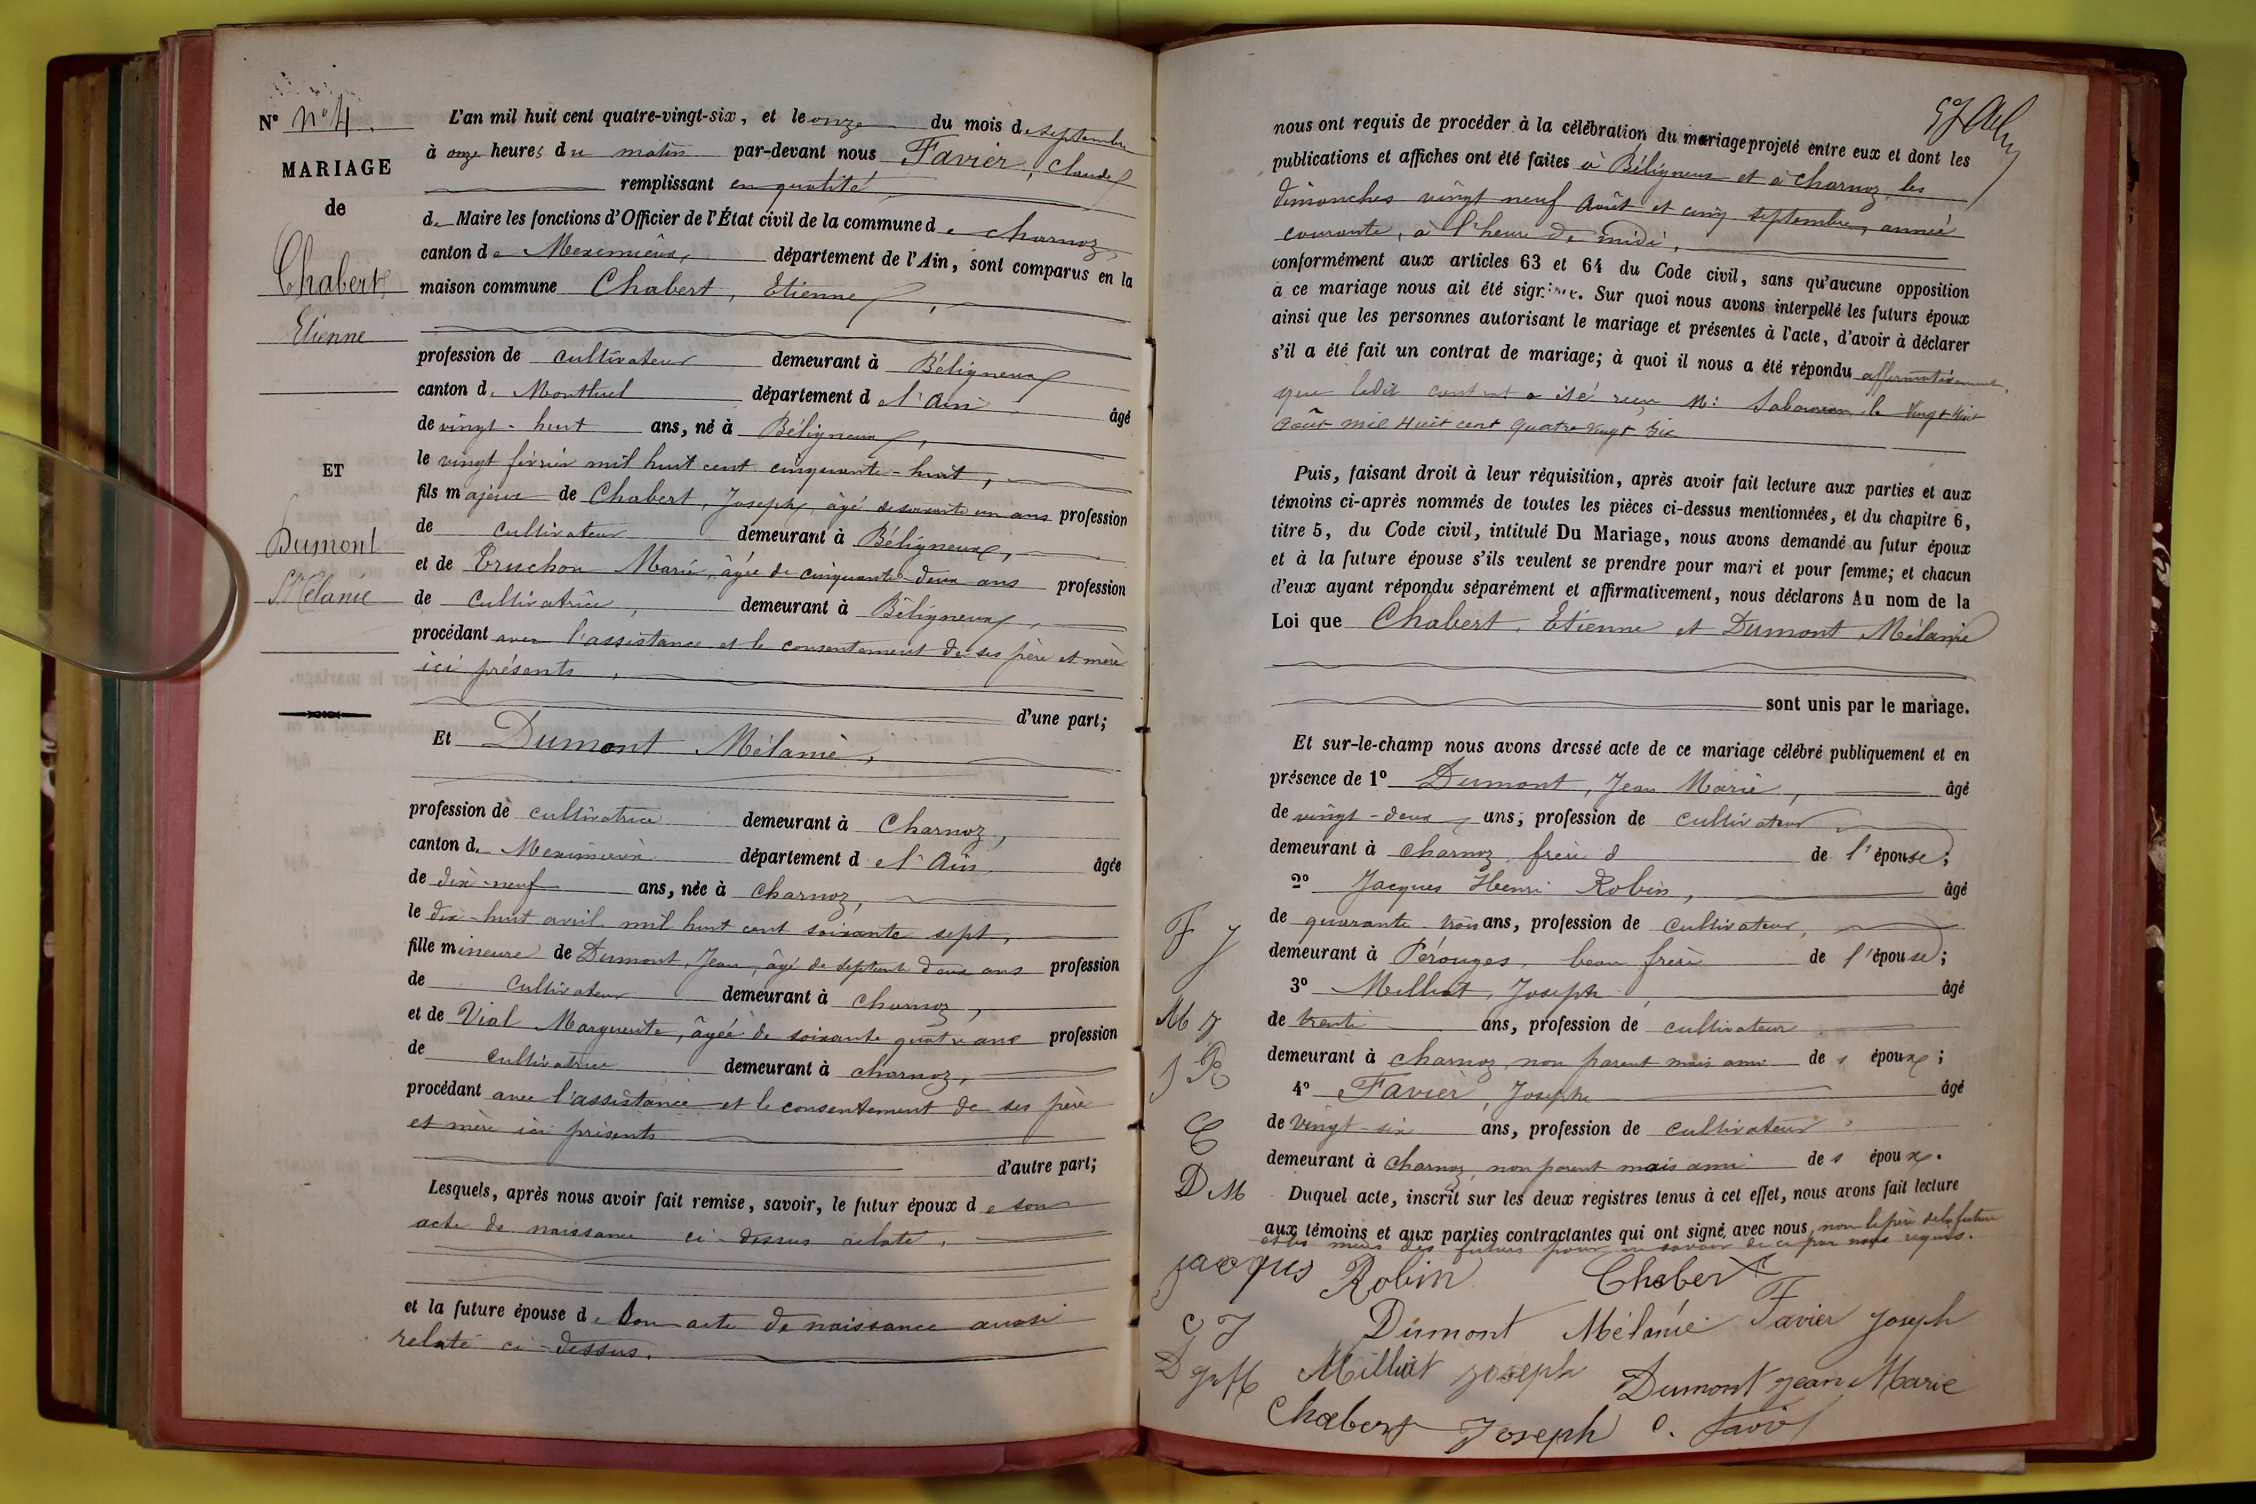 N° n° 4.
MARIAGE
de
Chabert
Etienne
ET
Dumont
Mélanie
L'an mil huit cent quatre-vingt-six, et le onze du mois de septembre
à onze heures du matin par-devant nous Favier, Claude
remplissant en qualité
de Maire les fonctions d'Officier de l'État civil de la commune de Charnoz,
canton de Meximieux, département de l'Ain, sont comparus en la
maison commune Chabert, Etienne,
profession de cultivateur demeurant à Béligneux
canton de Montluel département de l'Ain âgé
de vingt-huit ans, né à Béligneux,
le vingt février mil huit cent cinquante-huit,
fils majeur de Chabert, Joseph, âgé de soixante un ans profession
de cultivateur demeurant à Béligneux,
et de Truchon Marie, âgée de cinquante-deux ans profession
de cultivatrice, demeurant à Béligneux,
procédant avec l'assistance et le consentement de ses père et mère
ici présents,
d'une part;
Et Dumont Mélanie,
profession de cultivatrice demeurant à Charnoz,
canton de Meximieux département de l'Ain âgée
de dix-neuf ans, née à Charnoz,
le dix-huit avril mil huit cent soixante sept,
fille mineure de Dumont, Jean, âgé de septante deux ans profession
de cultivateur demeurant à Charnoz,
et de Vial Marguerite, âgée de soixante quatre ans profession
de cultivatrice demeurant à Charnoz,
procédant avec l'assistance et le consentement de ses père
et mère ici présents
d'autre part;
Lesquels, après nous avoir fait remise, savoir, le futur époux de son
acte de naissance ci-dessus relaté,
et la future épouse de son acte de naissance aussi
relaté ci-dessus.
nous ont requis de procéder à la célébration du mariage projeté entre eux et dont les
publications et affiches ont été faites à Béligneux et à Charnoz les
dimanches vingt neuf août et cinq septembre, année
courante, à l'heure de midi,
conformément aux articles 63 et 64 du Code civil, sans qu'aucune opposition
à ce mariage nous ait été signifiée. Sur quoi nous avons interpellé les futurs époux
ainsi que les personnes autorisant le mariage et présentes à l'acte, d'avoir à déclarer
s'il a été fait un contrat de mariage; à quoi il nous a été répondu affirmativement,
que ledit contrat a été reçu M: le Vingt Huit
Août mil Huit cent Quatre Vingt Six
Puis, faisant droit à leur réquisition, après avoir fait lecture aux parties et aux
témoins ci-après nommés de toutes les pièces ci-dessus mentionnées, et du chapitre 6,
titre 5, du Code civil, intitulé Du Mariage, nous avons demandé au futur époux
et à la future épouse s'ils veulent se prendre pour mari et pour femme; et chacun
d'eux ayant répondu séparément et affirmativement, nous déclarons Au nom de la
Loi que Chabert, Etienne et Dumont, Mélanie
sont unis par le mariage.
Et sur-le-champ nous avons dressé acte de ce mariage célébré publiquement et en
présence de 1° Dumont, Jean Marie, âgé
de vingt-deux ans, profession de cultivateur
demeurant à Charnoz frère d de l'épouse;
2° Jacques Henri Robin, âgé
de quarante trois ans, profession de cultivateur,
demeurant à Pérouges, beau frère de l'épouse;
3° Milliat, Joseph, âgé
de trente ans, profession de cultivateur
demeurant à Charnoz non parent mais ami des époux;
4° Favier, Joseph âgé
de vingt-six ans, profession de cultivateur
demeurant à Charnoz, non parent mais ami des époux.
Duquel acte, inscrit sur les deux registres tenus à cet effet, nous avons fait lecture
aux témoins et aux parties contractantes qui ont signé avec nous, non le père de la future
et les mères des futurs pour ne savoir de ce par nous requis.
F J
M J
J R
C
D M
C J
D J M
Jacques Robin Chabert
Dumont Mélanie Favier Joseph
Milliat Joseph Dumont Jean Marie
Chabert Joseph C. Favier